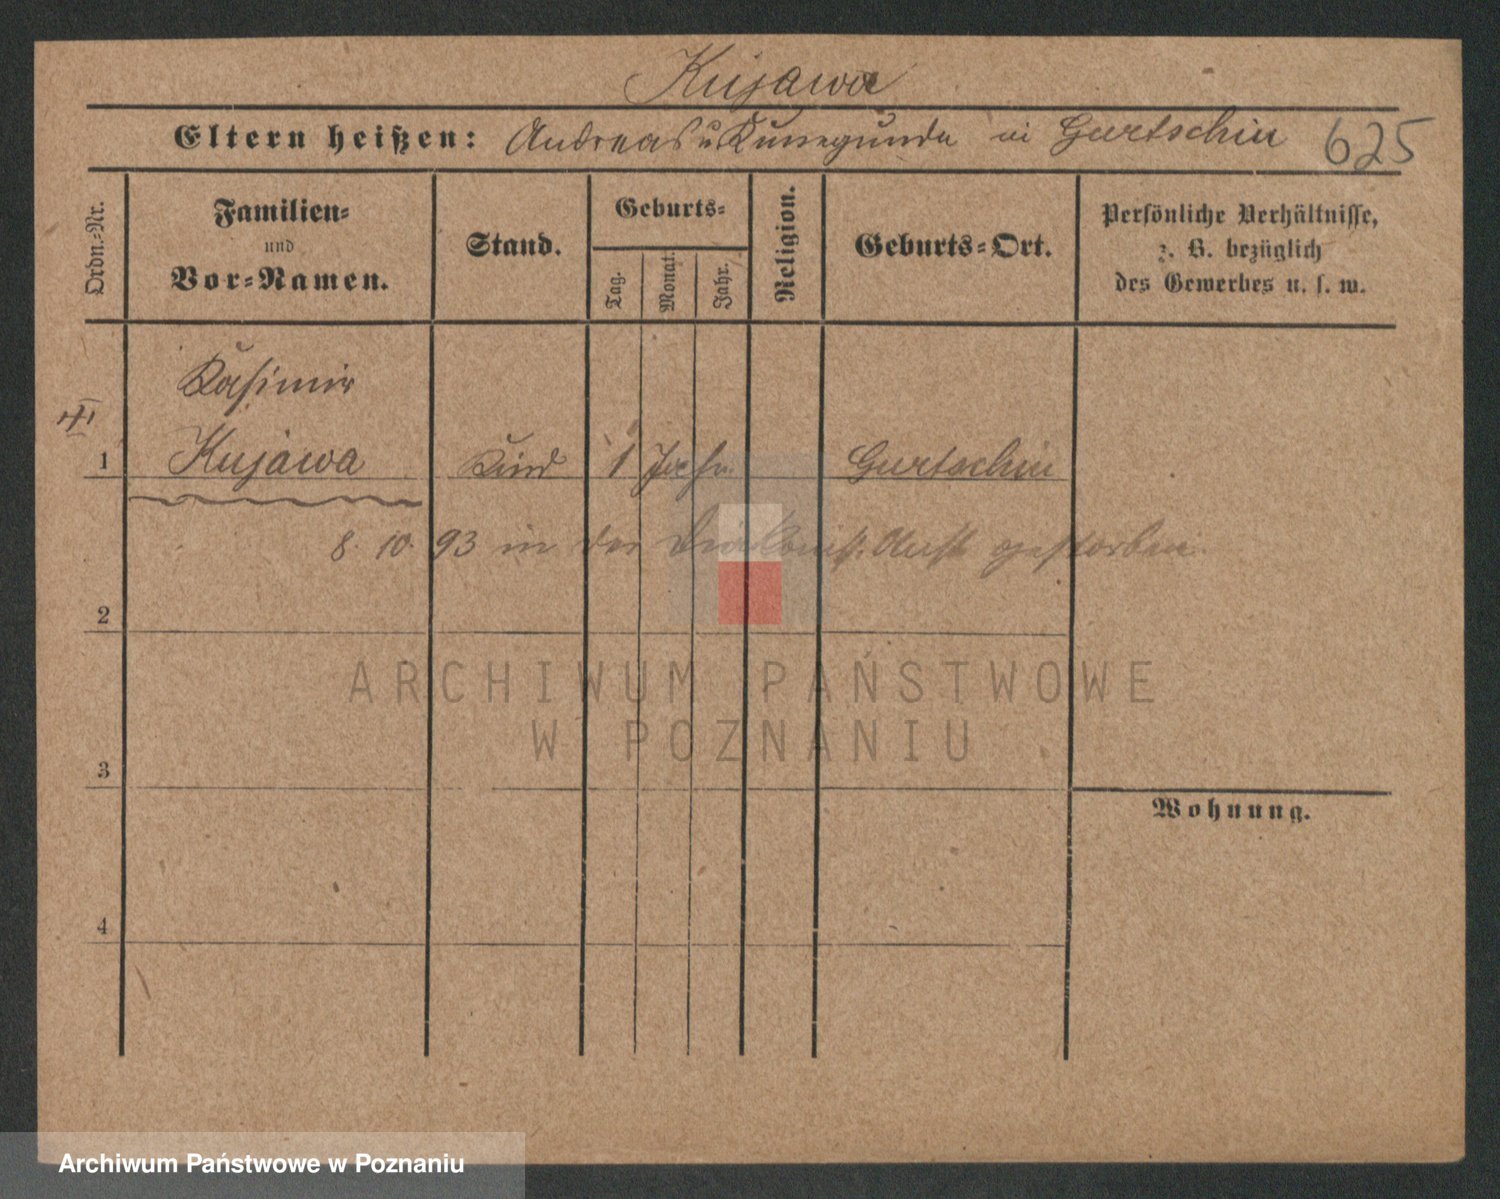 Kujawa
Eltern heißen: Andreas u Kunegunda in Gurtschin 625
Ordn.-Nr.
Familien-
und
Vor-Namen.
Stand.
Geburts-
Tag.
Monat.
Jahr.
Religion.
Geburts-Ort.
Persönliche Verhältnisse,
z. B. bezüglich
des Gewerbes u. s. w.
Kasimir
1 Kujawa Kind 1 Jahr Gurtschin
8. 10. 93 in der Diakoniss. Anst gestorben.
2
3
4
Wohnung.
ARCHIWUM PAŃSTWOWE
W POZNANIU
Archiwum Państwowe w Poznaniu